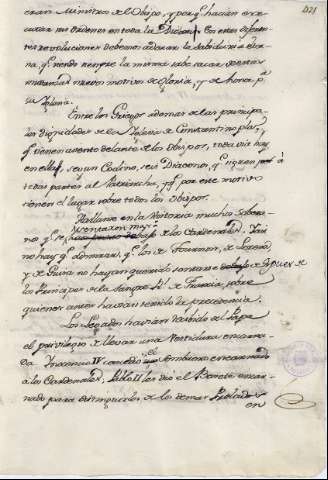 421
eran Ministros del Obispo, y por q.e hacian exe-
cutar sus Ordenes en toda la Diocesis. En estas diferen-
tes revoluciones debemos adorar la Sabiduria eter-
na, q.e siendo siempre la misma sabe sacar de estas
mutaciones nuevos motivos de Gloria, y de honor p.a
su Iglesia.
Entre los Griegos ademas de las principa-
les dignidades de la Iglesia de Constantinopla,
q.e tienen asiento delante de los Obispos, todavia hay
en ellas, segun Codino, seis Diaconos, q.e siguen por à
todas partes al Patriarcha, y q.e por este motivo
tienen el lugar sobre todos los Obispos.
Hallanse en la Historia muchos Sobera-
nos q.e se sentaron
de los Cardenales. Assi
no hay q.e admirar, q.e los de Tournon, de Lorena,
y de Guisa no hayan querido sentarse despues de
los Principes de la Sangre R.l de Francia, sobre
quienes antes havian tenido la precedencia.
Los Legados havian recibido del Papa
el privilegio de llevar una Vestidura encarna-
da. Inocencio IV. concedio el Sombrero encarnado
à los Cardenales, Pablo II les dió el Bonete encar-
nado para distinguirlos de los demas Prelados
en